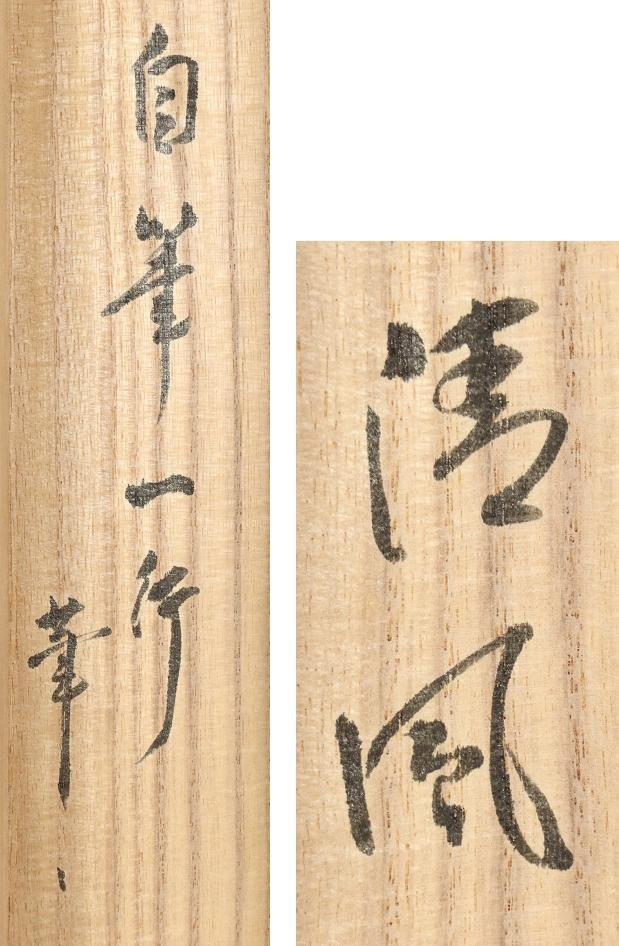 清風
自筆一行
華